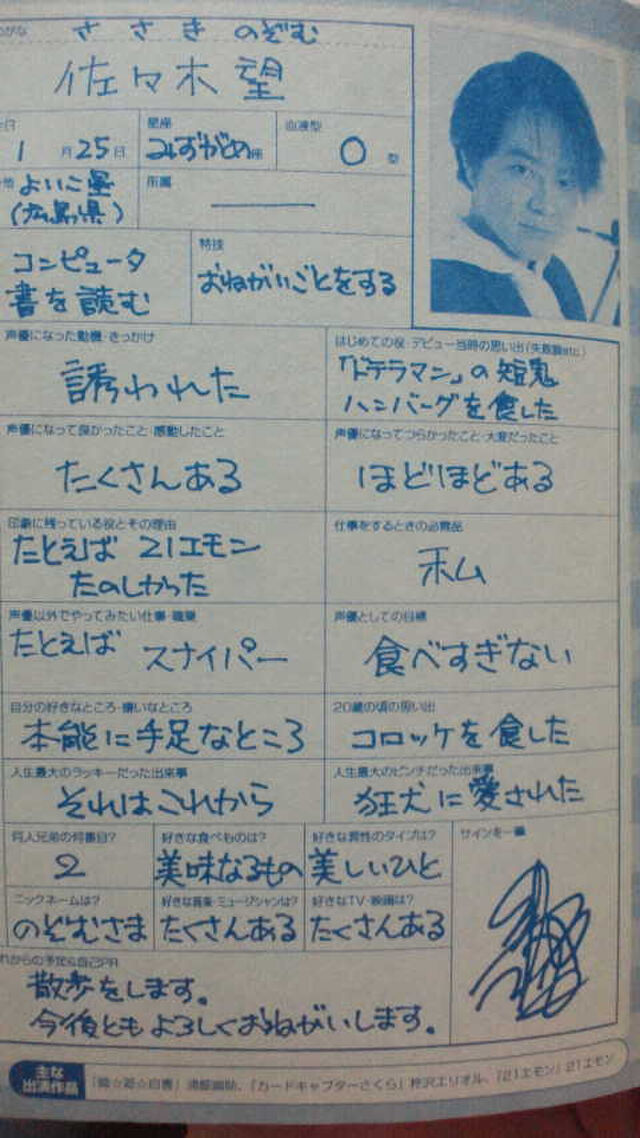 ささき のぞむ
佐々木 望
星座
血液型
1月25日
みずがめ座
O型
所属
よいこ星
(広島県)
特技
コンピュータ
書を読む
おねがいごとをする
声優になった動機・きっかけ
はじめての役・デビュー当時の思い出(失敗談etc.)
誘われた
「ドテラマン」の短鬼
ハンバーグを食した
声優になって良かったこと・感動したこと
声優になってつらかったこと・大変だったこと
たくさんある
ほどほどある
印象に残っている役とその理由
仕事をするときの必需品
たとえば 21エモン
たのしかった
私
声優以外でやってみたい仕事・職業
声優としての目標
たとえば スナイパー
食べすぎない
自分の好きなところ・嫌いなところ
20歳の頃の思い出
本能に手足なところ
コロッケを食した
人生最大のラッキーだった出来事
人生最大のピンチだった出来事
それはこれから
狂犬に愛された
何人兄弟の何番目?
好きな食べものは?
好きな異性のタイプは?
サインを一筆
2
美味なるもの
美しいひと
ニックネームは?
好きな音楽・ミュージシャンは?
好きなTV・映画は?
のぞむさま
たくさんある
たくさんある
れからの予定&自己PR
散歩をします。
今後ともよろしくおねがいします。
主な
出演作品
「幽☆遊☆白書」浦飯幽助、「カードキャプターさくら」柊沢エリオル、「21エモン」21エモン